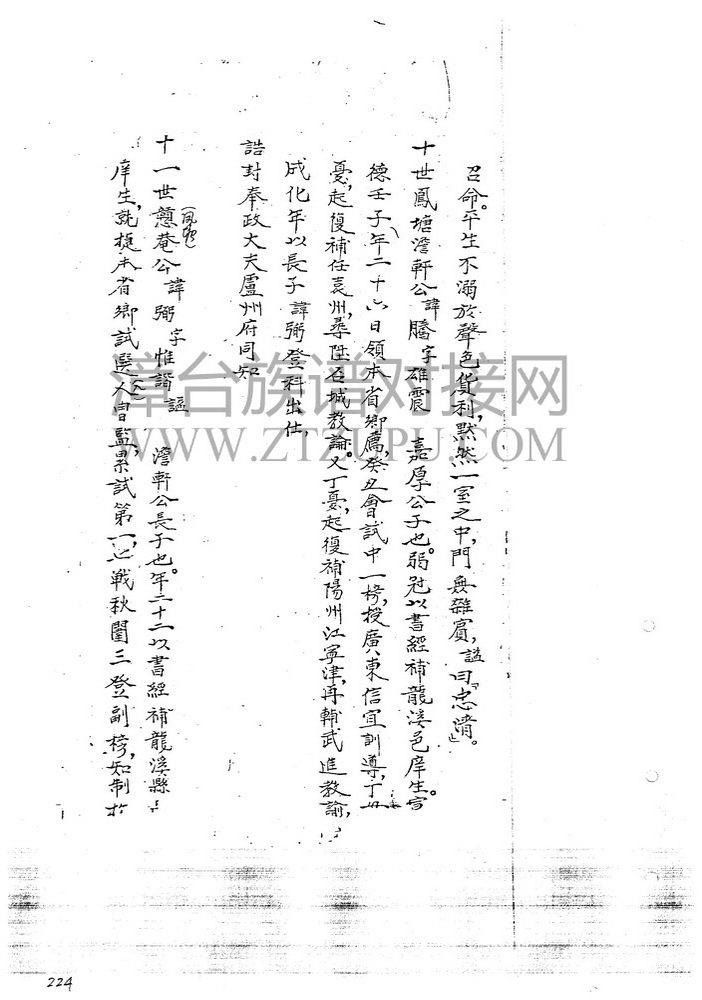 召命。平生不溺於聲色貨利，默然一室之中，門無雜賓，謚曰『忠清』。
十世鳳塘澹軒公諱騰字雄震 嘉厚公子也。弱冠以書經補龍溪邑庠生。宣
德壬子年二十六日領本省鄉薦，癸丑會試中一榜，授廣東信宜訓導，丁
憂，起復補任袁州，尋陞石城教諭。又丁憂，起復補陽州江寧津，再輔武進教諭，
成化年以長子諱弼登科出仕，
誥封奉政大夫廬州府同知
十一世戇菴公諱弼字惟諧謚 澹軒公長子也。年二十二以書經補龍溪縣
庠生，就捷本省鄉試選入胄監，累試第一，七戰秋闈三登副榜，知制
漳台族谱对接网
WWW.ZTZUPU.COM
224